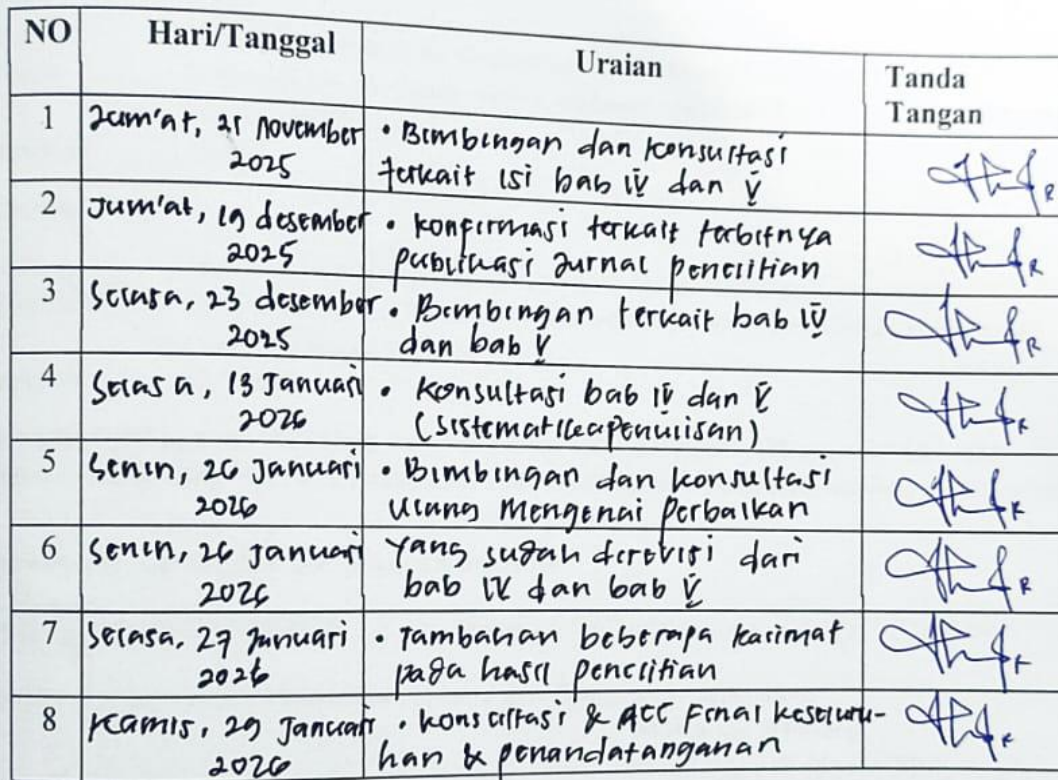 NO Hari/Tanggal Uraian Tanda Tangan
1 Jum'at, 21 November 2025 • Bimbingan dan konsultasi
terkait isi bab IV dan V
2 Jum'at, 19 desember 2025 • konfirmasi terkait terbitnya
publikasi Jurnal penelitian
3 Selasa, 23 desember 2025 • Bimbingan terkait bab IV
dan bab V
4 Selasa, 13 Januari 2026 • konsultasi bab IV dan V
(sistematika penulisan)
5 Senin, 26 Januari 2026 • Bimbingan dan konsultasi
ulang Mengenai Perbaikan
6 Senin, 26 Januari 2026 yang sudah direvisi dari
bab IV dan bab V
7 Selasa, 27 Januari 2026 • Tambahan beberapa kalimat
pada hasil penelitian
8 Kamis, 29 Januari 2026 • konsultasi & ACC Final keseluru-
han & penandatanganan